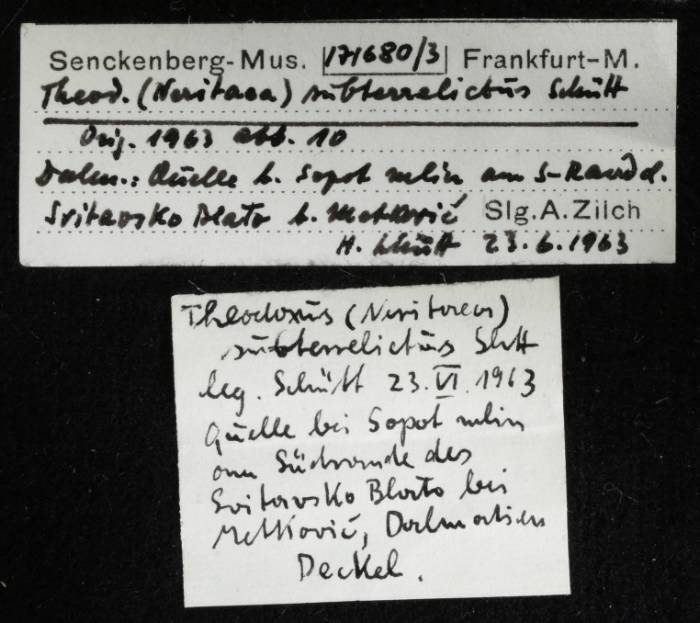 Senckenberg-Mus. 171680/3 Frankfurt-M.
Theod. (Neritaea) subterrelictus Schütt
Orig. 1963 Abb. 10
Dalm.: Quelle b. Sopot mlin am S-Rand d.
Svitavsko Blato b. Metković Slg.A.Zilch
H. Schütt 23.6.1963
Theodoxus (Neritaea)
subterrelictus Shtt
leg. Schütt 23.VI.1963
Quelle bei Sopot mlin
am Südrande des
Svitavsko Blato bei
Metković, Dalmatien
Deckel.